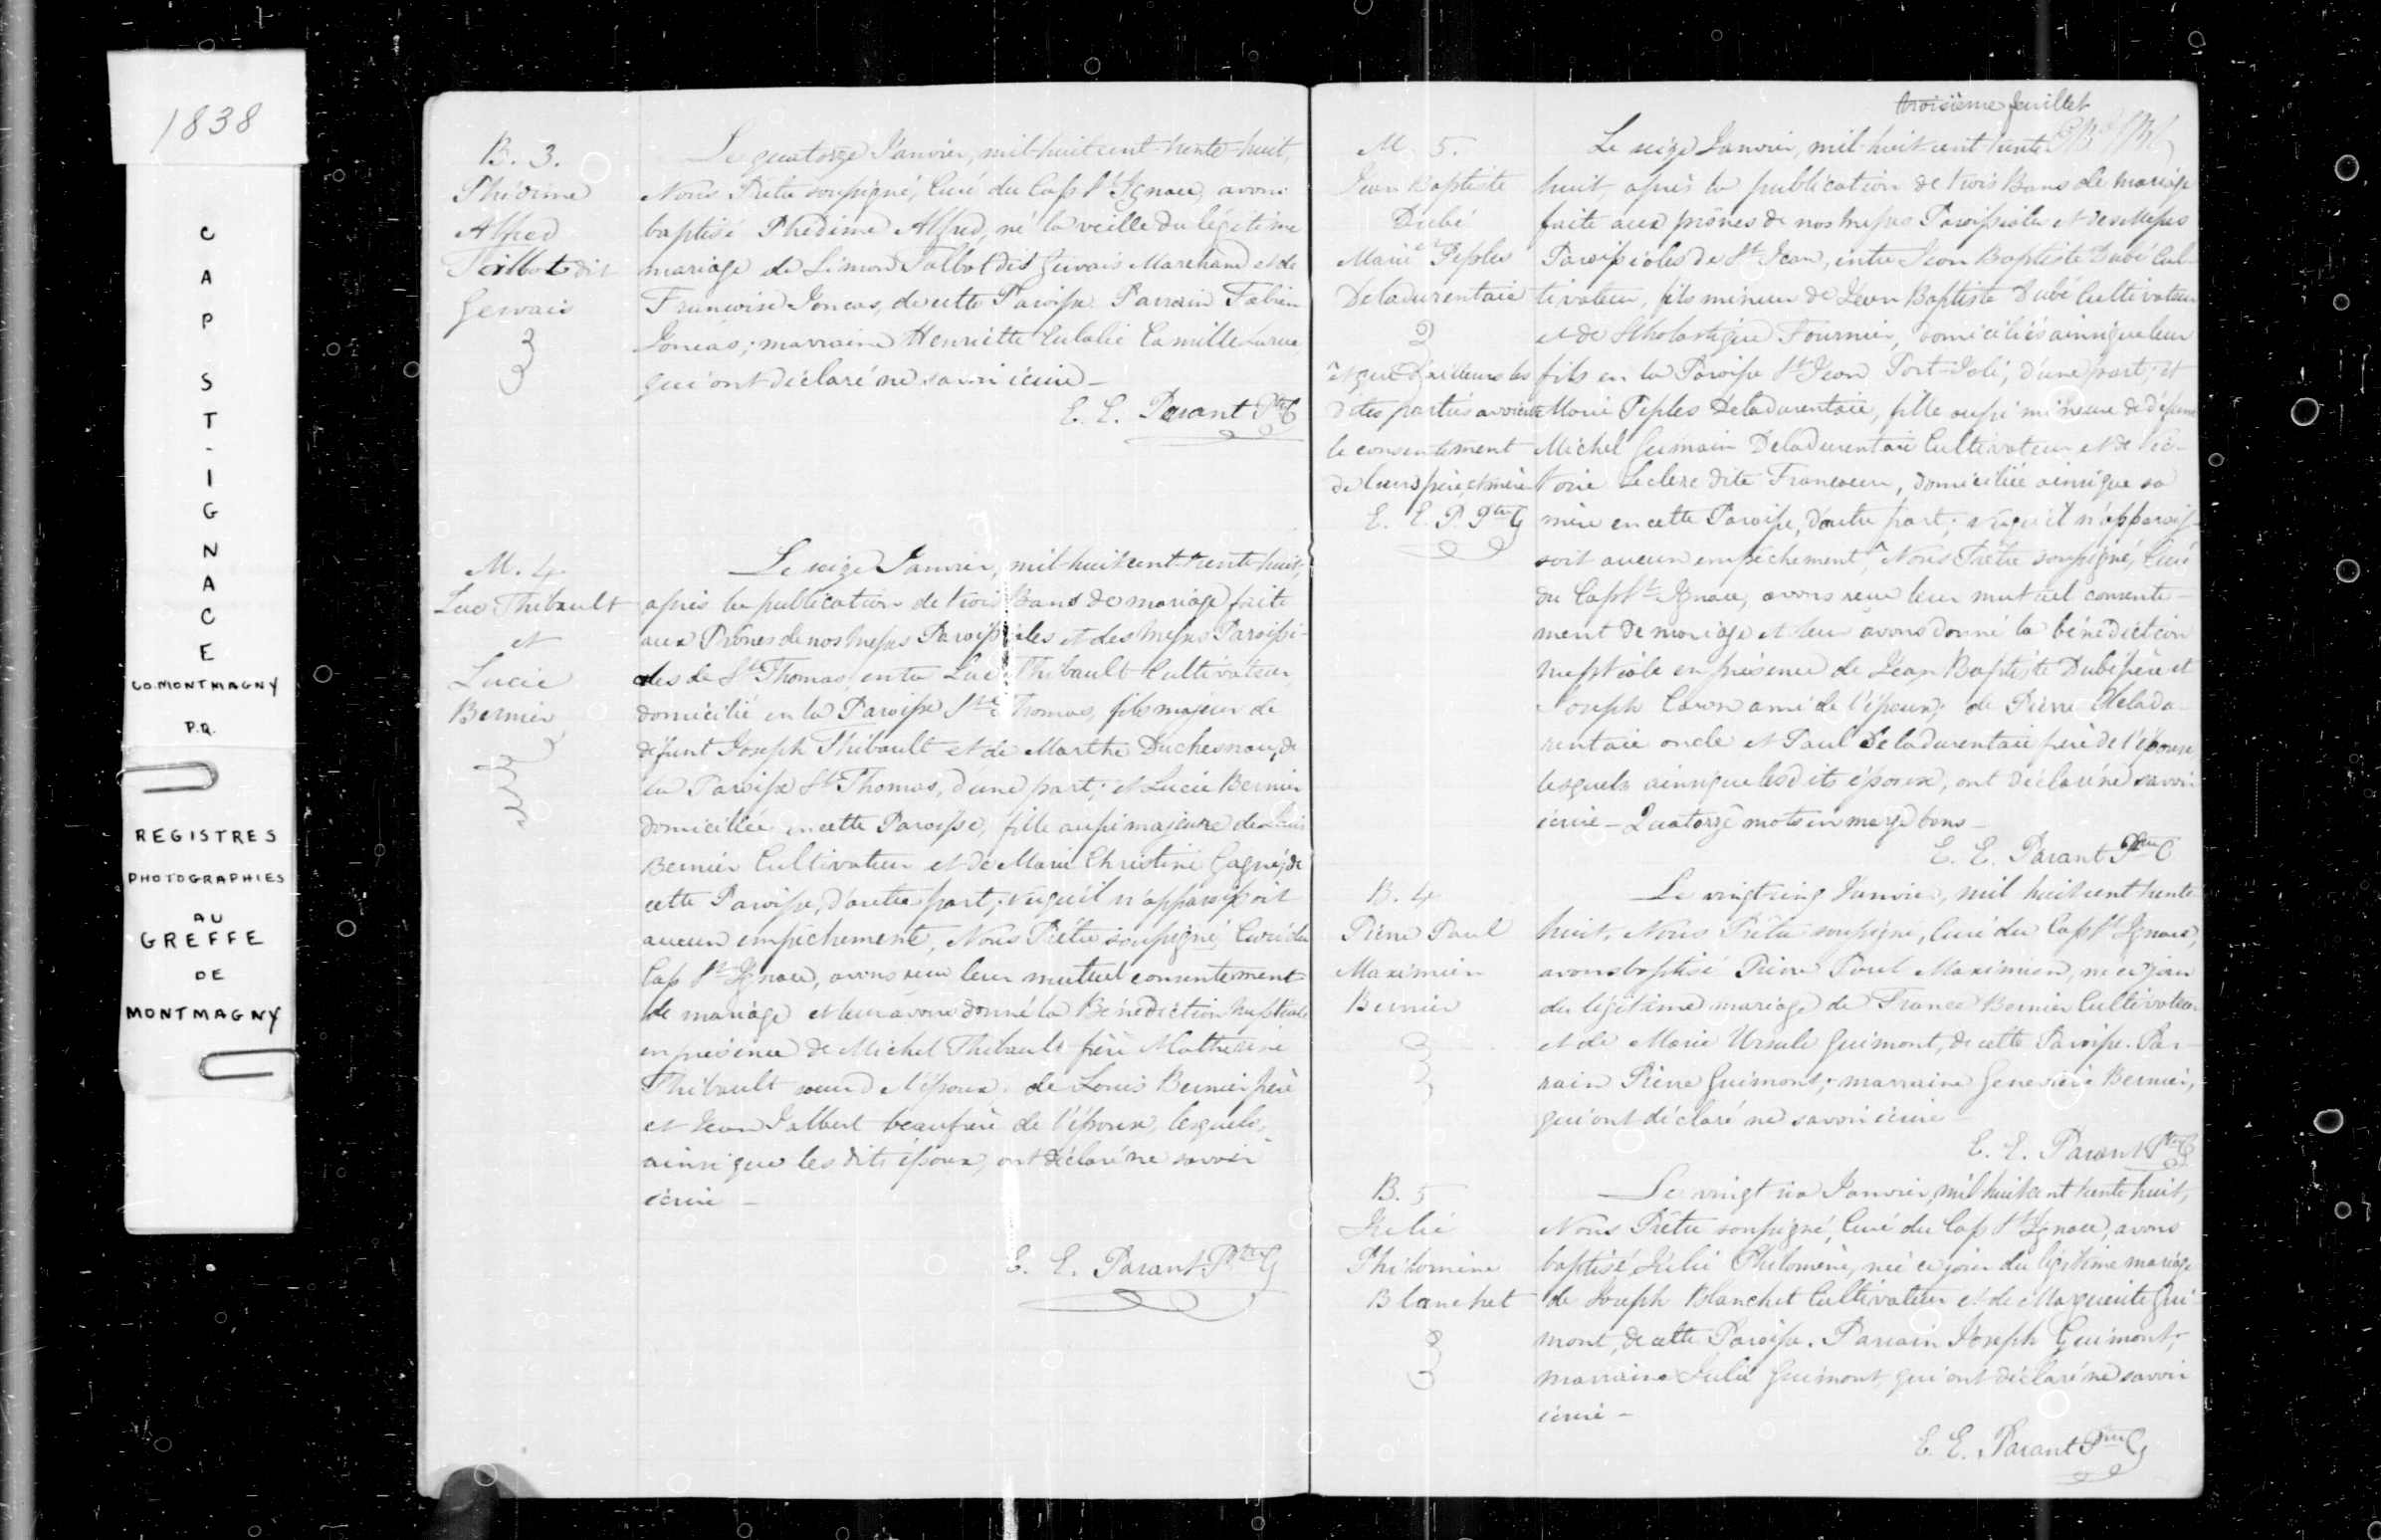 1838
CAP ST-IGNACE
CO. MONTMAGNY
P.Q.
REGISTRES
PHOTOGRAPHIES
AU
GREFFE
DE
MONTMAGNY
B. 3.
Phédime
Alfred
Talbot dit
Gervais
Le quatorze Janvier, mil-huit cent-trente-huit,
Nous Prêtre soussigné, Curé du Cap St Ignace, avons
baptisé Phédime Alfred, né la veille du légitime
mariage de Simon Talbot dit Gervais Marchand et de
Françoise Joncas, de cette Paroisse. Parrain Fabien
Joncas; marraine Henriette Eulalie Camille
qui ont déclaré ne savoir écrire –
E. E. Parant Ptre C
M. 4.
Luc Thibault
et
Lucie
Bernier
Le seize Janvier, mil-huit cent-trente-huit,
après la publication de trois Bans de mariage faite
aux Prônes de nos Messes Paroissiales et des Messes Paroissi-
ales de St Thomas, entre Luc Thibault Cultivateur
domicilié en la Paroisse St Thomas, fils majeur de
défunt Joseph Thibault et de Marthe Duchesneau, de
la Paroisse St Thomas, d'une part; et Lucie Bernier
domiciliée en cette Paroisse, fille aussi majeure de Louis
Bernier Cultivateur et de Marie Christine Gagné, de
cette Paroisse, d'autre part; vu qu'il n'apparoissoit
aucun empêchement, Nous Prêtre soussigné, Curé du
Cap St Ignace, avons reçu leur mutuel consentement
de mariage et leur avons donné la Bénédiction nuptiale
en présence de Michel Thibault frère
Thibault soeur de l'époux; de Louis Bernier père
et Jean Jalbert beaufrère de l'épouse, lesquels,
ainsi que les dits époux, ont déclaré ne savoir
écrire –
E. E. Parant Ptre C
troisième feuillet
M. 5.
Jean Baptiste
Dubé
et
Marie Peples
Deladurentaie
et que d'ailleurs les
dites parties avoient
le consentement
de leurs père et mère
E. E. P. Ptre C
Le seize Janvier, mil-huit-cent trente
huit, après la publication de trois Bans de mariage
faite aux prônes de nos Messes Paroissiales et des Messes
Paroissiales de St Jean, entre Jean Baptiste Dubé Cul-
tivateur, fils mineur de Jean Baptiste Dubé Cultivateur
et de Scholastique Fournier, domiciliés ainsi que leur
fils en la Paroisse St Jean Port-Joli, d'une part; et
Marie Peples Deladurentaie, fille aussi mineure de défunt
Michel Germain Deladurentaie Cultivateur et de Vic-
toire Leclerc dite Francoeur, domiciliée ainsi que sa
mère en cette Paroisse, d'autre part; vu qu'il n'apparois-
soit aucun empêchement, Nous Prêtre soussigné, Curé
du Cap St Ignace, avons reçu leur mutuel consente-
ment de mariage et leur avons donné la bénédiction
nuptiale en présence de Jean Baptiste Dubé père et
Joseph Caron ami de l'époux; de Pierre Deladu-
rentaie oncle et Paul Deladurentaie frère de l'épouse
lesquels ainsi que les dits époux, ont déclaré ne savoir
écrire – Quatorze mots en marge bons –
E. E. Parant Ptre C
B. 4
Pierre Paul
Maximien
Bernier
Le vingt cinq Janvier, mil huit cent trente
huit, Nous Prêtre soussigné, Curé du Cap St Ignace,
avons baptisé Pierre Paul Maximien, né ce jour
du légitime mariage de France Bernier Cultivateur
et de Marie Ursule Guimont, de cette Paroisse. Par-
rain Pierre Guimont; marraine Geneviève Bernier,
qui ont déclaré ne savoir écrire –
E. E. Parant Ptre C
B. 5
Julie
Philomène
Blanchet
Le vingt six Janvier, mil huit cent trente huit,
Nous Prêtre soussigné, Curé du Cap St Ignace, avons
baptisé Julie Philomène, née ce jour du légitime mariage
de Joseph Blanchet Cultivateur et de Marguerite Gui-
mont, de cette Paroisse. Parrain Joseph Guimont;
marraine Julie Guimont qui ont déclaré ne savoir
écrire –
E. E. Parant Ptre C